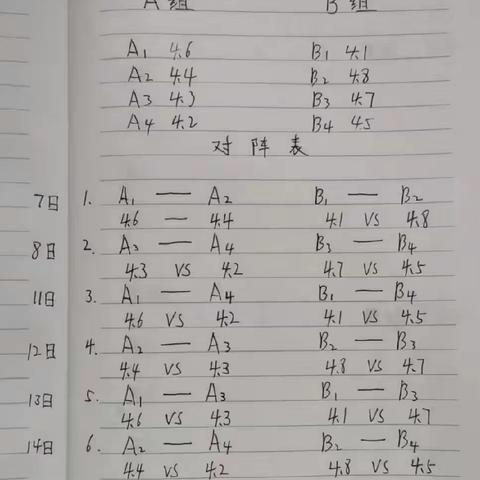 A组 B组
A1 4.6 B1 4.1
A2 4.4 B2 4.8
A3 4.3 B3 4.7
A4 4.2 B4 4.5
对阵表
7日 1. A1 — A2 B1 — B2
4.6 — 4.4 4.1 VS 4.8
8日 2. A3 — A4 B3 — B4
4.3 VS 4.2 4.7 VS 4.5
11日 3. A1 — A4 B1 — B4
4.6 VS 4.2 4.1 VS 4.5
12日 4. A2 — A3 B2 — B3
4.4 VS 4.3 4.8 VS 4.7
13日 5. A1 — A3 B1 — B3
4.6 VS 4.3 4.1 VS 4.7
14日 6. A2 — A4 B2 — B4
4.4 VS 4.2 4.8 VS 4.5